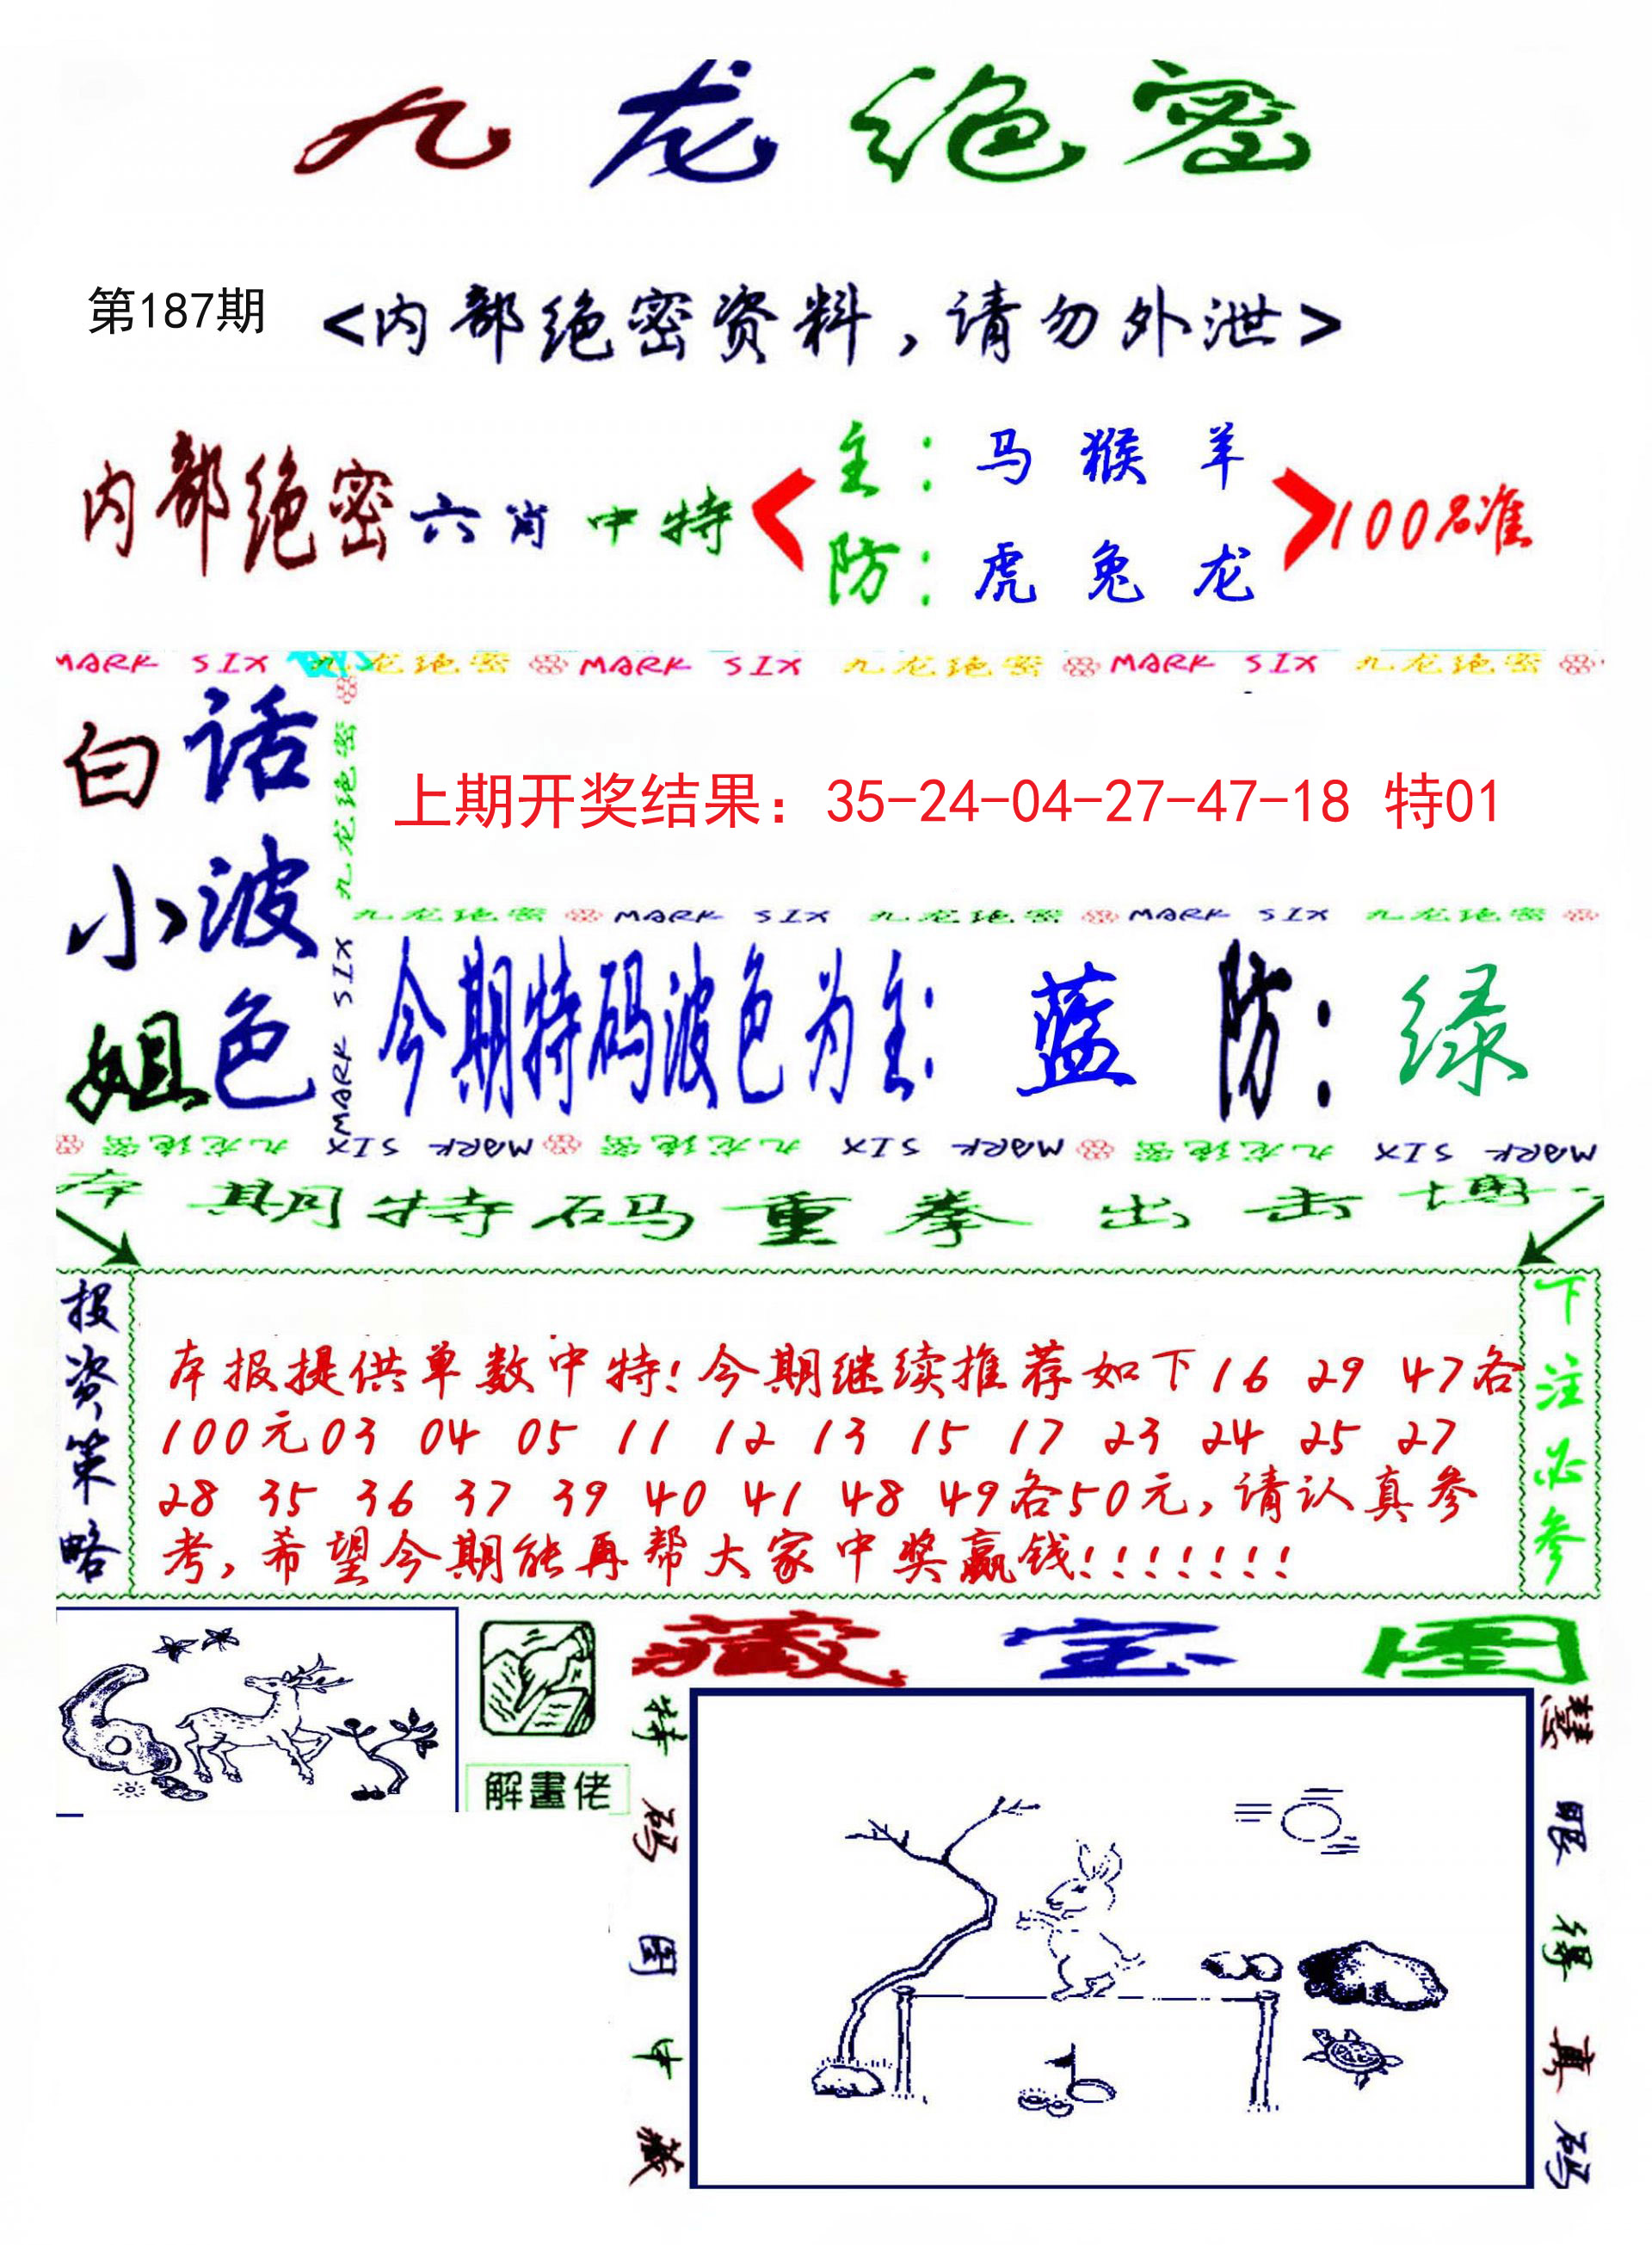 九龙绝密
第187期 <内部绝密资料,请勿外泄>
内部绝密六肖中特
主:马 猴 羊
防:虎 兔 龙
100%准
MARK SIX 九龙绝密 MARK SIX 九龙绝密 MARK SIX 九龙绝密
白小姐
话波色
九龙绝密
MARK SIX
上期开奖结果：35-24-04-27-47-18 特01
九龙绝密 MARK SIX 九龙绝密 MARK SIX 九龙绝密
今期特码波色为主: 蓝 防: 绿
九龙绝密 MARK SIX 九龙绝密 MARK SIX 九龙绝密 MARK SIX
本期特码重拳出击博
投资策略
本报提供单数中特!今期继续推荐如下16 29 47各
100元03 04 05 11 12 13 15 17 23 24 25 27
28 35 36 37 39 40 41 48 49各50元,请认真参
考,希望今期能再帮大家中奖赢钱!!!!!!!
下注必参
解畫佬
藏宝图
特码图中藏
慧眼得真码